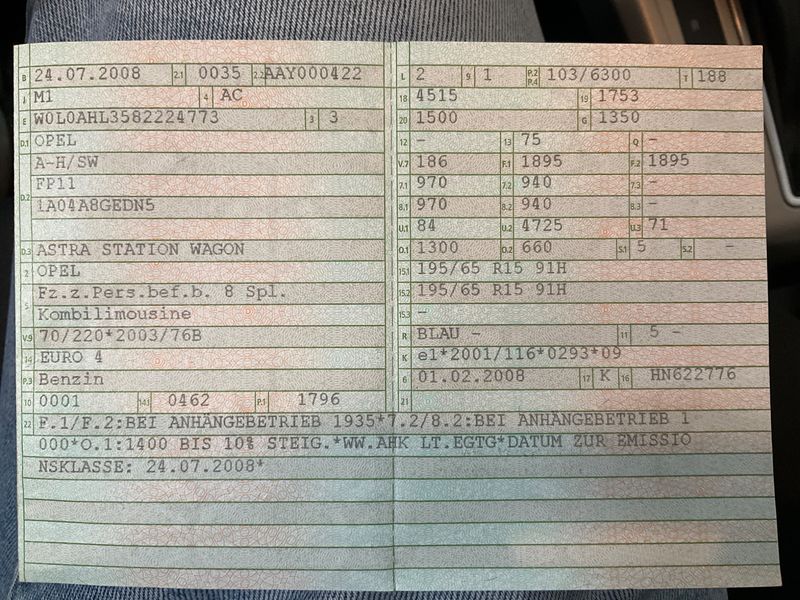 B 24.07.2008 2.1 0035 2.2 AAY000422
J M1 4 AC
E W0L0AHL3582224773 3 3
D.1 OPEL
D.2 A-H/SW
FP11
1A04A8GEDN5
D.3 ASTRA STATION WAGON
2 OPEL
5 Fz.z.Pers.bef.b. 8 Spl.
Kombilimousine
V.9 70/220*2003/76B
14 EURO 4
P.3 Benzin
10 0001 14.1 0462 P.1 1796
L 2 9 1 P.2 P.4 103/6300 T 188
18 4515 19 1753
20 1500 G 1350
12 - 13 75 Q -
V.7 186 F.1 1895 F.2 1895
7.1 970 7.2 940 7.3 -
8.1 970 8.2 940 8.3 -
U.1 84 U.2 4725 U.3 71
O.1 1300 O.2 660 S.1 5 S.2 -
15.1 195/65 R15 91H
15.2 195/65 R15 91H
15.3 -
R BLAU - 11 5 -
K e1*2001/116*0293*09
6 01.02.2008 17 K 16 HN622776
21
22 F.1/F.2:BEI ANHÄNGEBETRIEB 1935*7.2/8.2:BEI ANHANGEBETRIEB 1
000*O.1:1400 BIS 10% STEIG.*WW.AHK LT.EGTG*DATUM ZUR EMISSIO
NSKLASSE: 24.07.2008*